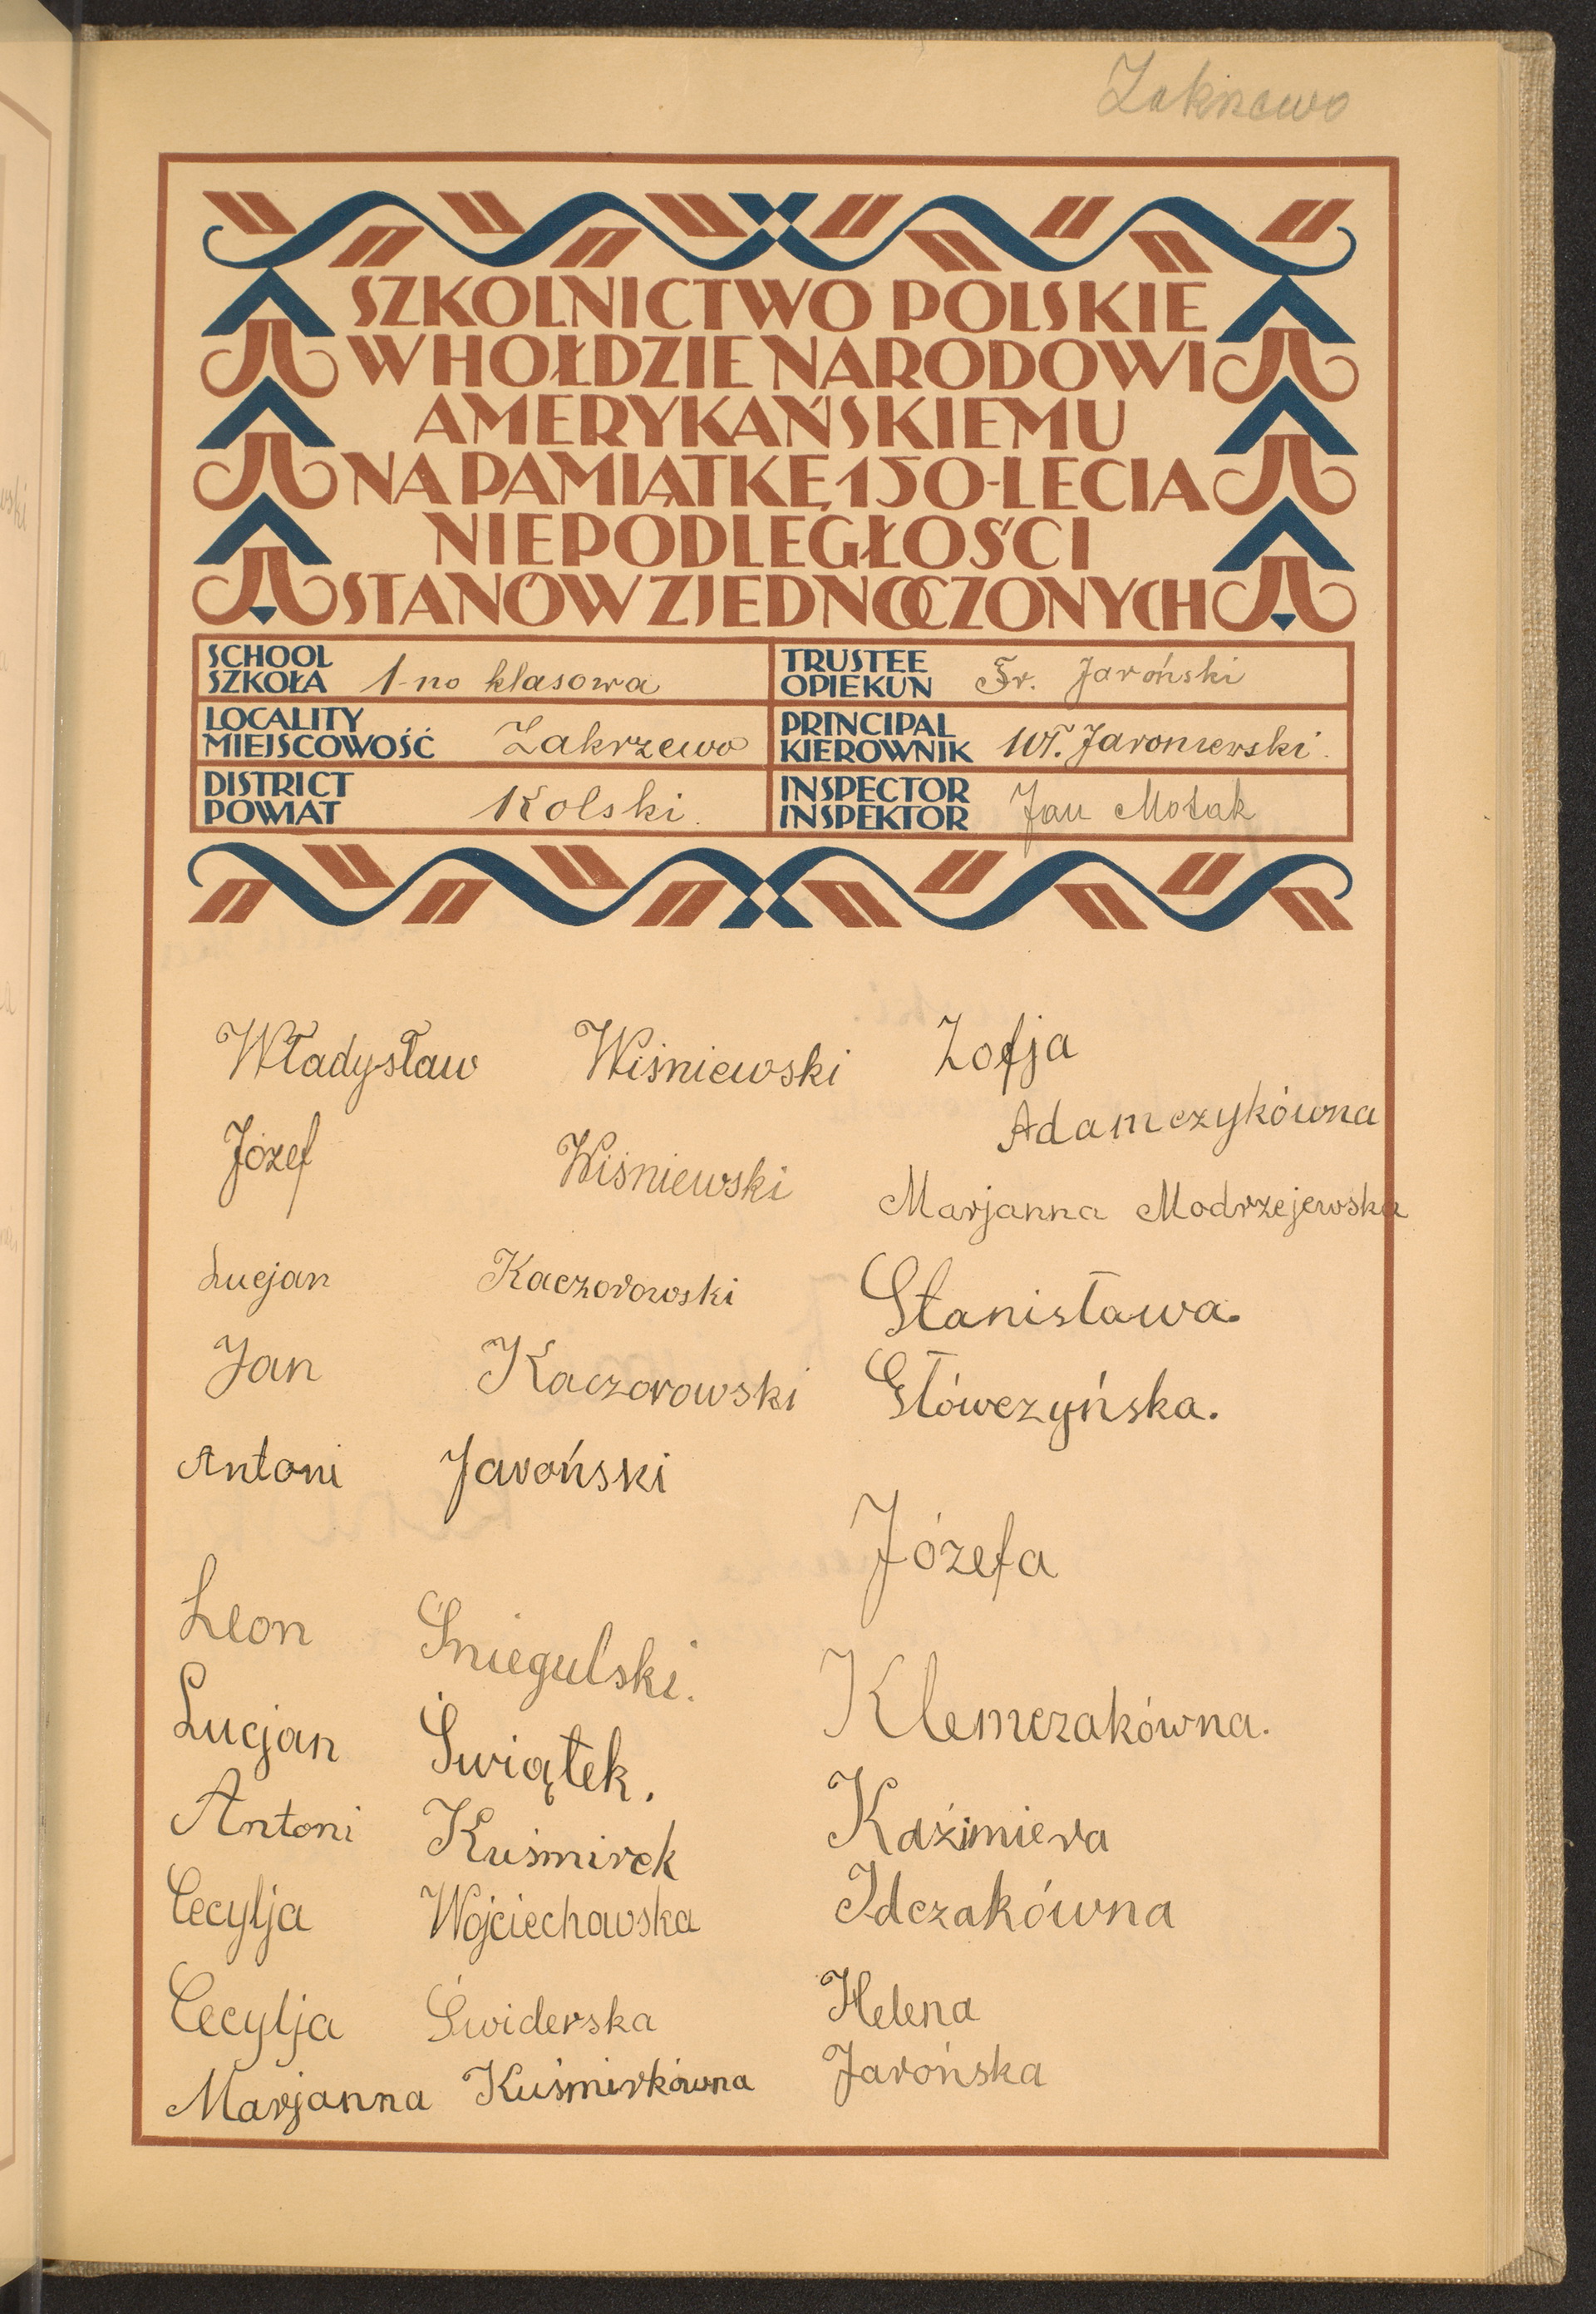 Zakrzewo
SZKOLNICTWO POLSKIE
W HOŁDZIE NARODOWI
AMERYKAŃSKIEMU
NA PAMIĄTKĘ 150-LECIA
NIEPODLEGŁOŚCI
STANÓW ZJEDNOCZONYCH
SCHOOL
SZKOŁA 1-no klasowa
TRUSTEE
OPIEKUN Fr. Jaroński
LOCALITY
MIEJSCOWOŚĆ Zakrzewo
PRINCIPAL
KIEROWNIK Wł. Jaroniewski.
DISTRICT
POWIAT Kolski.
INSPECTOR
INSPEKTOR Jan Motak
Władysław Wiśniewski
Józef Wiśniewski
Lucjan Kaczorowski
Jan Kaczorowski
Antoni Jaroński
Leon Śniegulski.
Lucjan Świątek.
Antoni Kuśmirek
Cecylja Wojciechowska
Cecylja Świderska
Marjanna Kuśmirkówna
Zofja
Adamczykówna
Marjanna Modrzejewska
Stanisława.
Główczyńska.
Józefa
Klemczakówna.
Kaźimiera
Idczakówna
Helena
Jarońska